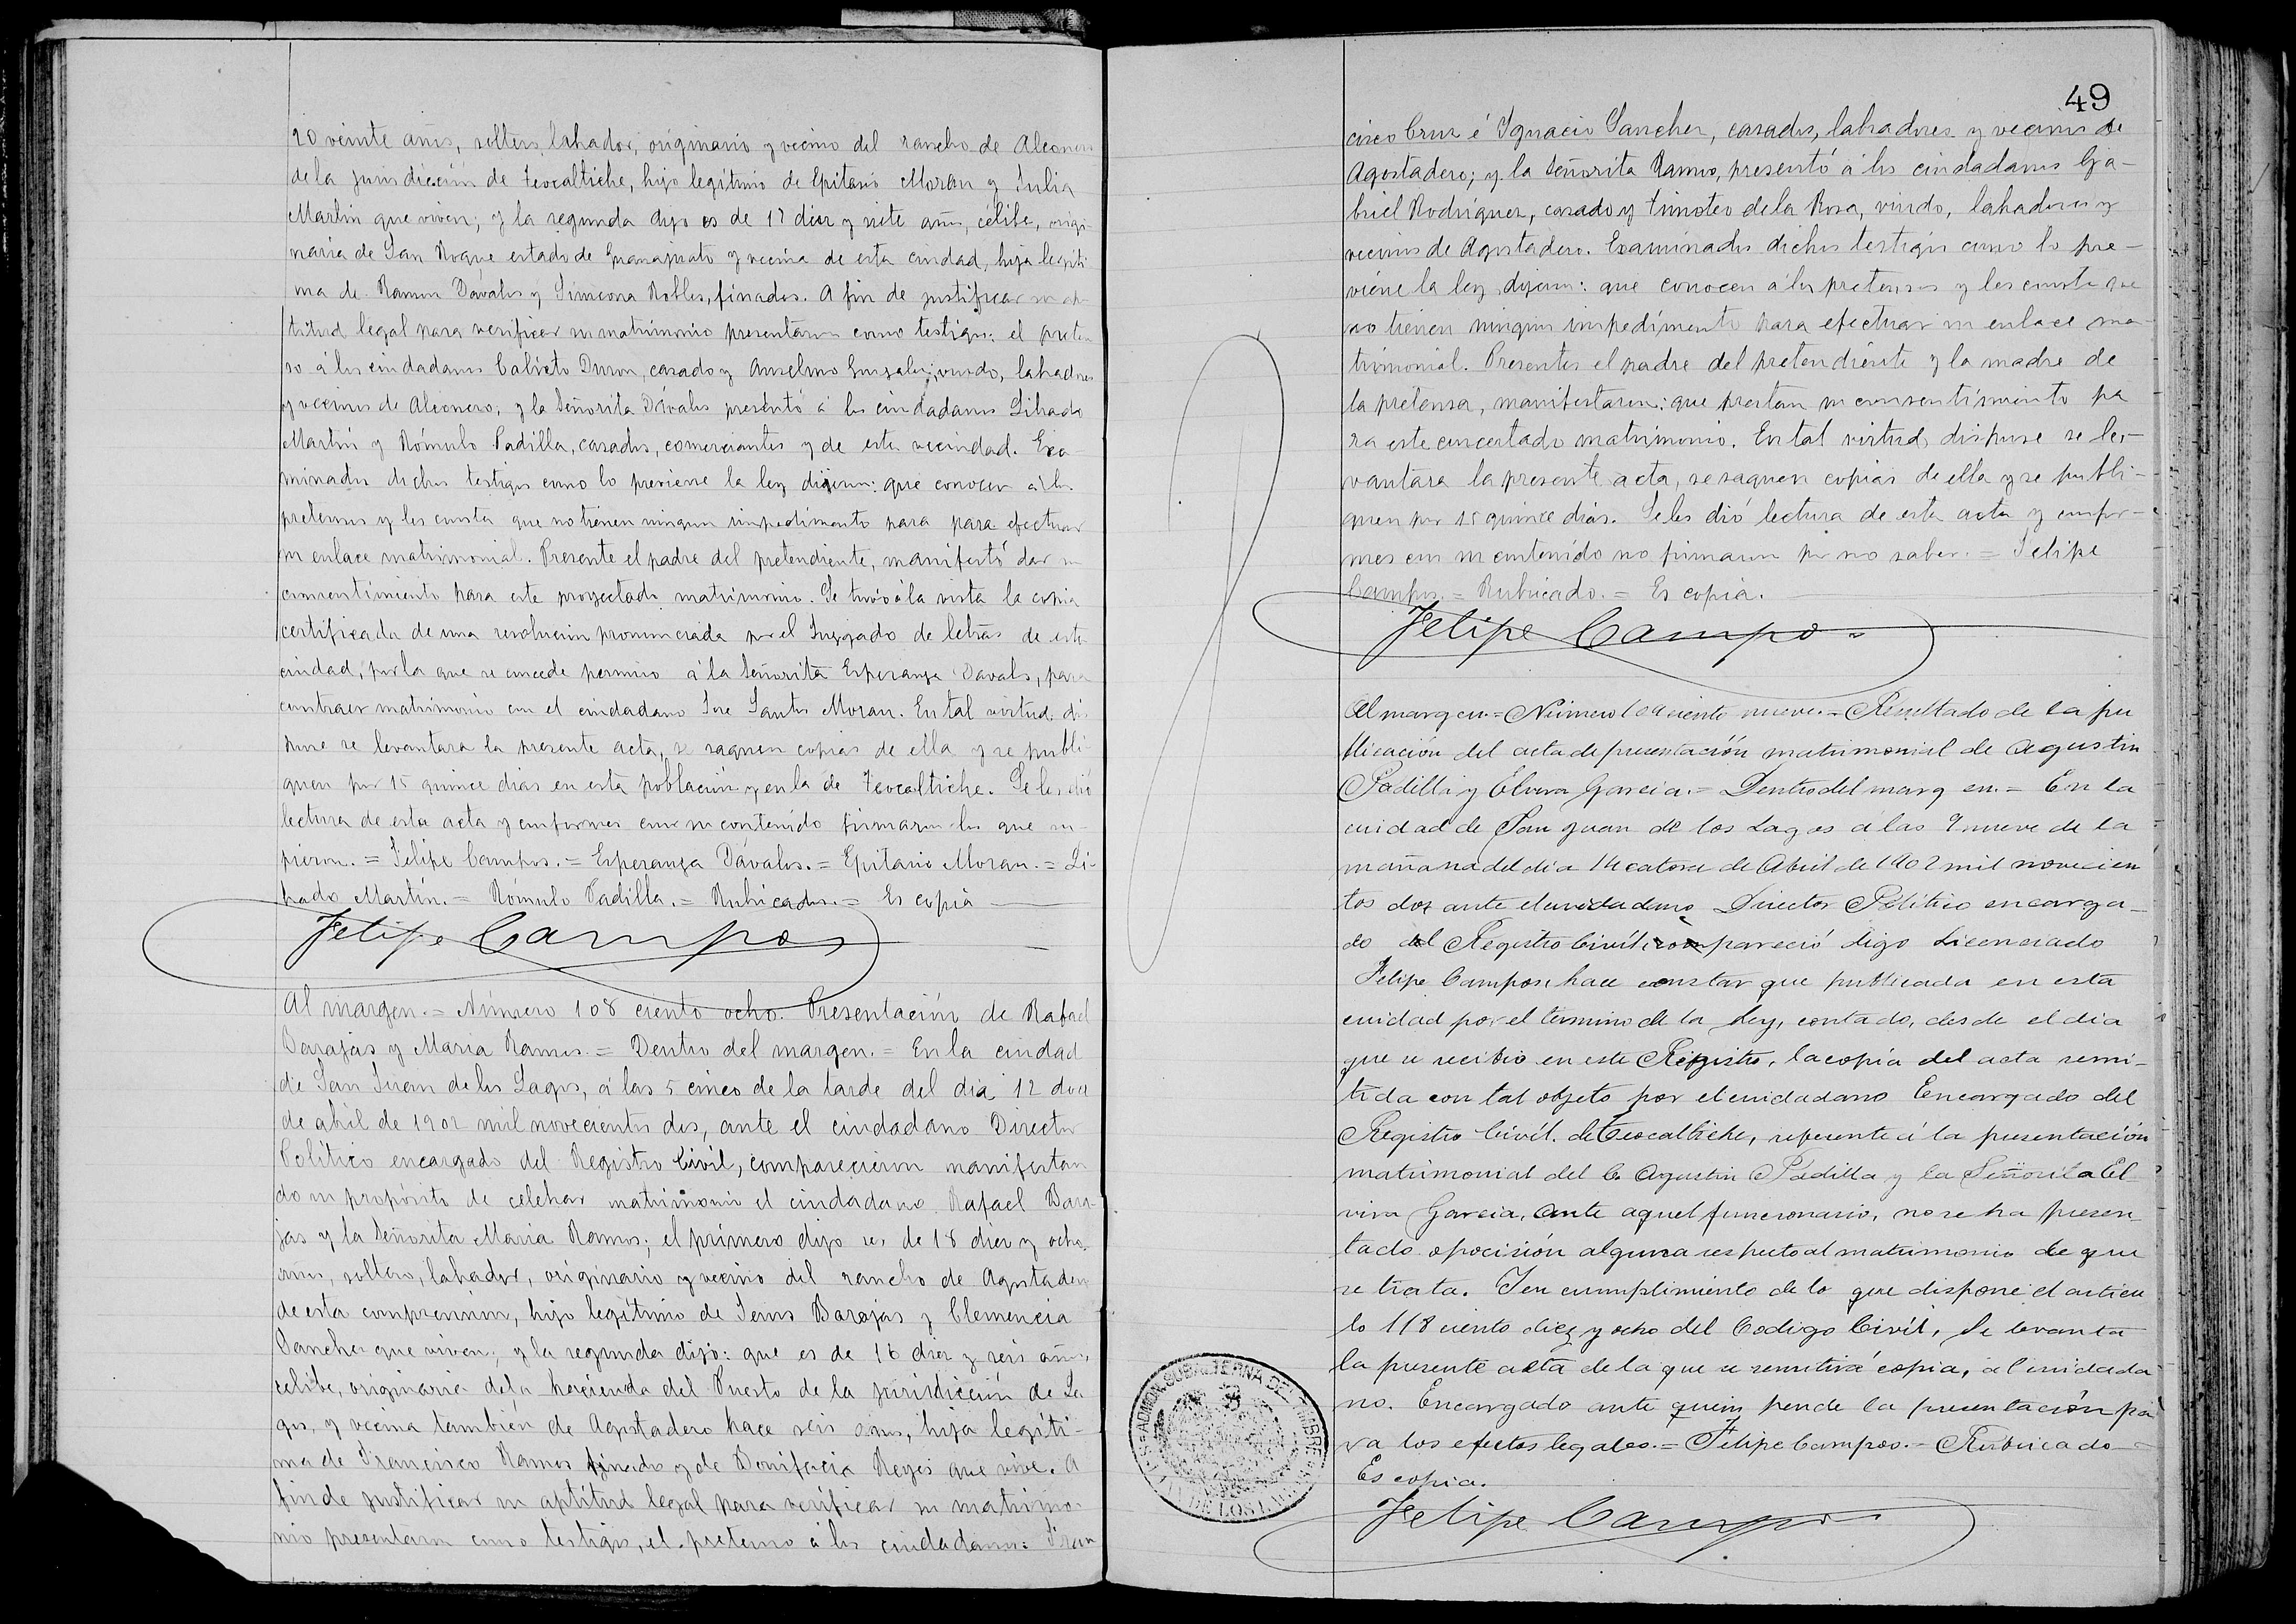 20 veinte años, soltero, labrador, originario y vecino del rancho de Alconero
de la jurisdicción de Teocaltiche, hijo legítimo de Epitacio Moran y Julia
Martin que viven; y la segunda dijo es de 17 diez y siete años, célibe, origi-
naria de San Roque estado de Guanajuato y vecina de esta ciudad, hija legíti-
ma de Ramon Dávalos y Simeona Robles, finados. A fin de justificar su ap-
titud legal para verificar su matrimonio presentaron como testigos: el preten-
so á los ciudadanos Calisto Duron, casado y Anselmo viudo, labradores
y vecinos de Alconero, y la Señorita Dávalos presentó á los ciudadanos Librado
Martín y Rómulo Padilla, casados, comerciantes y de esta vecindad. Exa-
minados dichos testigos como lo previene la ley dijeron: que conocen á los
pretensos y les consta que no tienen ningun impedimento para para efectuar
su enlace matrimonial. Presente el padre del pretendiente, manifestó dar su
consentimiento para este proyectado matrimonio. Se tuvo á la vista la copia
certificada de una resolucion pronunciada por el Juzgado de letras de esta
ciudad, por la que se concede permiso á la Señorita Esperanza Davalos, para
contraer matrimonio con el ciudadano José Santos Moran. En tal virtud, dis-
puse se levantara la presente acta, se saquen copias de ella y se publi-
quen por 15 quince dias en esta población y en la de Teocaltiche. Se les dió
lectura de esta acta y conformes con su contenido firmaron los que su-
pieron. = Felipe Campos. = Esperanza Dávalos. = Epitacio Moran. = Li-
brado Martín. = Rómulo Padilla. = Rubricados. = Es copia
Felipe Campos
Al margen. = Número 108 ciento ocho. Presentación de Rafael
Barajas y Maria Ramos. = Dentro del margen. = En la ciudad
de San Juan de los Lagos, á las 5 cinco de la tarde del dia 12 doce
de abril de 1902 mil novecientos dos, ante el ciudadano Director
Politico encargado del Registro Civil, comparecieron manifestan-
do su propósito de celebrar matrimonio el ciudadano Rafael Bara-
jas y la Señorita Maria Ramos; el primero dijo ser de 18 diez y ocho
años, soltero, labrador, originario y vecino del rancho de Agostadero
de esta comprension, hijo legítimo de Jesus Barajas y Clemencia
Sanchez que viven; y la segunda dijo: que es de 16 diez y seis años,
celibe, originaria de la hacienda del Puesto de la jurisdicción de La-
gos, y vecina también de Agostadero hace seis años, hija legíti-
ma de Francisco Ramos finado y de Bonifacia Reyes que vive. A
fin de justificar su aptitud legal para verificar su matrimo-
nio presentaron como testigos, el pretenso á los ciudadanos: Fran
49
cisco Cruz é Ignacio Sanchez, casados, labradores y vecinos de
Agostadero; y la Señorita Ramos, presentó á los ciudadanos Ga-
briel Rodríguez, casado y Timoteo de la Rosa, viudo, labradores y
vecinos de Agostadero. Examinados dichos testigos como lo pre-
viene la ley, dijeron: que conocen á los pretensos y les consta que
no tienen ningun impedimento para efectuar su enlace ma-
trimonial. Presentes el padre del pretendiente y la madre de
la pretensa, manifestaron: que prestan su consentimiento pa
ra este concertado matrimonio. En tal virtud, dispuse se le-
vantara la presente acta, se saquen copias de ella y se publi-
quen por 15 quince dias. Se les dió lectura de esta acta y confor-
mes con su contenido no firmaron por no saber. = Felipe
Campos. = Rubricado. = Es copia.
Felipe Campos
Al margen. = Número 109 ciento nueve. = Resultado de la pu
blicación del acta de presentación matrimonial de Agustin
Padilla y Elvira Garcia. = Dentro del margen. = En la
cuidad de San Juan de los Lagos a las 9 nueve de la
mañana del dia 14 catorce de Abril de 1902 mil novecien
tos dos ante el ciudadano Director Político encarga-
do del Registro Civil compareció digo Licenciado
Felipe Campos hace constar que publicada en esta
cuidad por el término de la Ley, contado, desde el dia
que se recibio en este Registro, la copia del acta remi-
tida con tal objeto por el cuidadano Encargado del
Registro Civíl. de Teocaltiche, referente á la presentación
matrimonial del C. Agustin Padilla y la Señorita El
vira Garcia, ante aquel funcionario, no se ha presen
tado oposición alguna respecto al matrimonio de que
se trata. Y en cumplimiento de lo que dispone el articu
lo 118 ciento diez y ocho del Codigo Civíl, se levanta
la presente acta de la que se remitirá copia, al cuidada
no. Encargado ante quien pende la presentación pa
ra los efectos legales. = Felipe Campos. = Rubricado =
Es copia.
Felipe Campos
ADMON. SUBALTERNA DEL TIMBRE